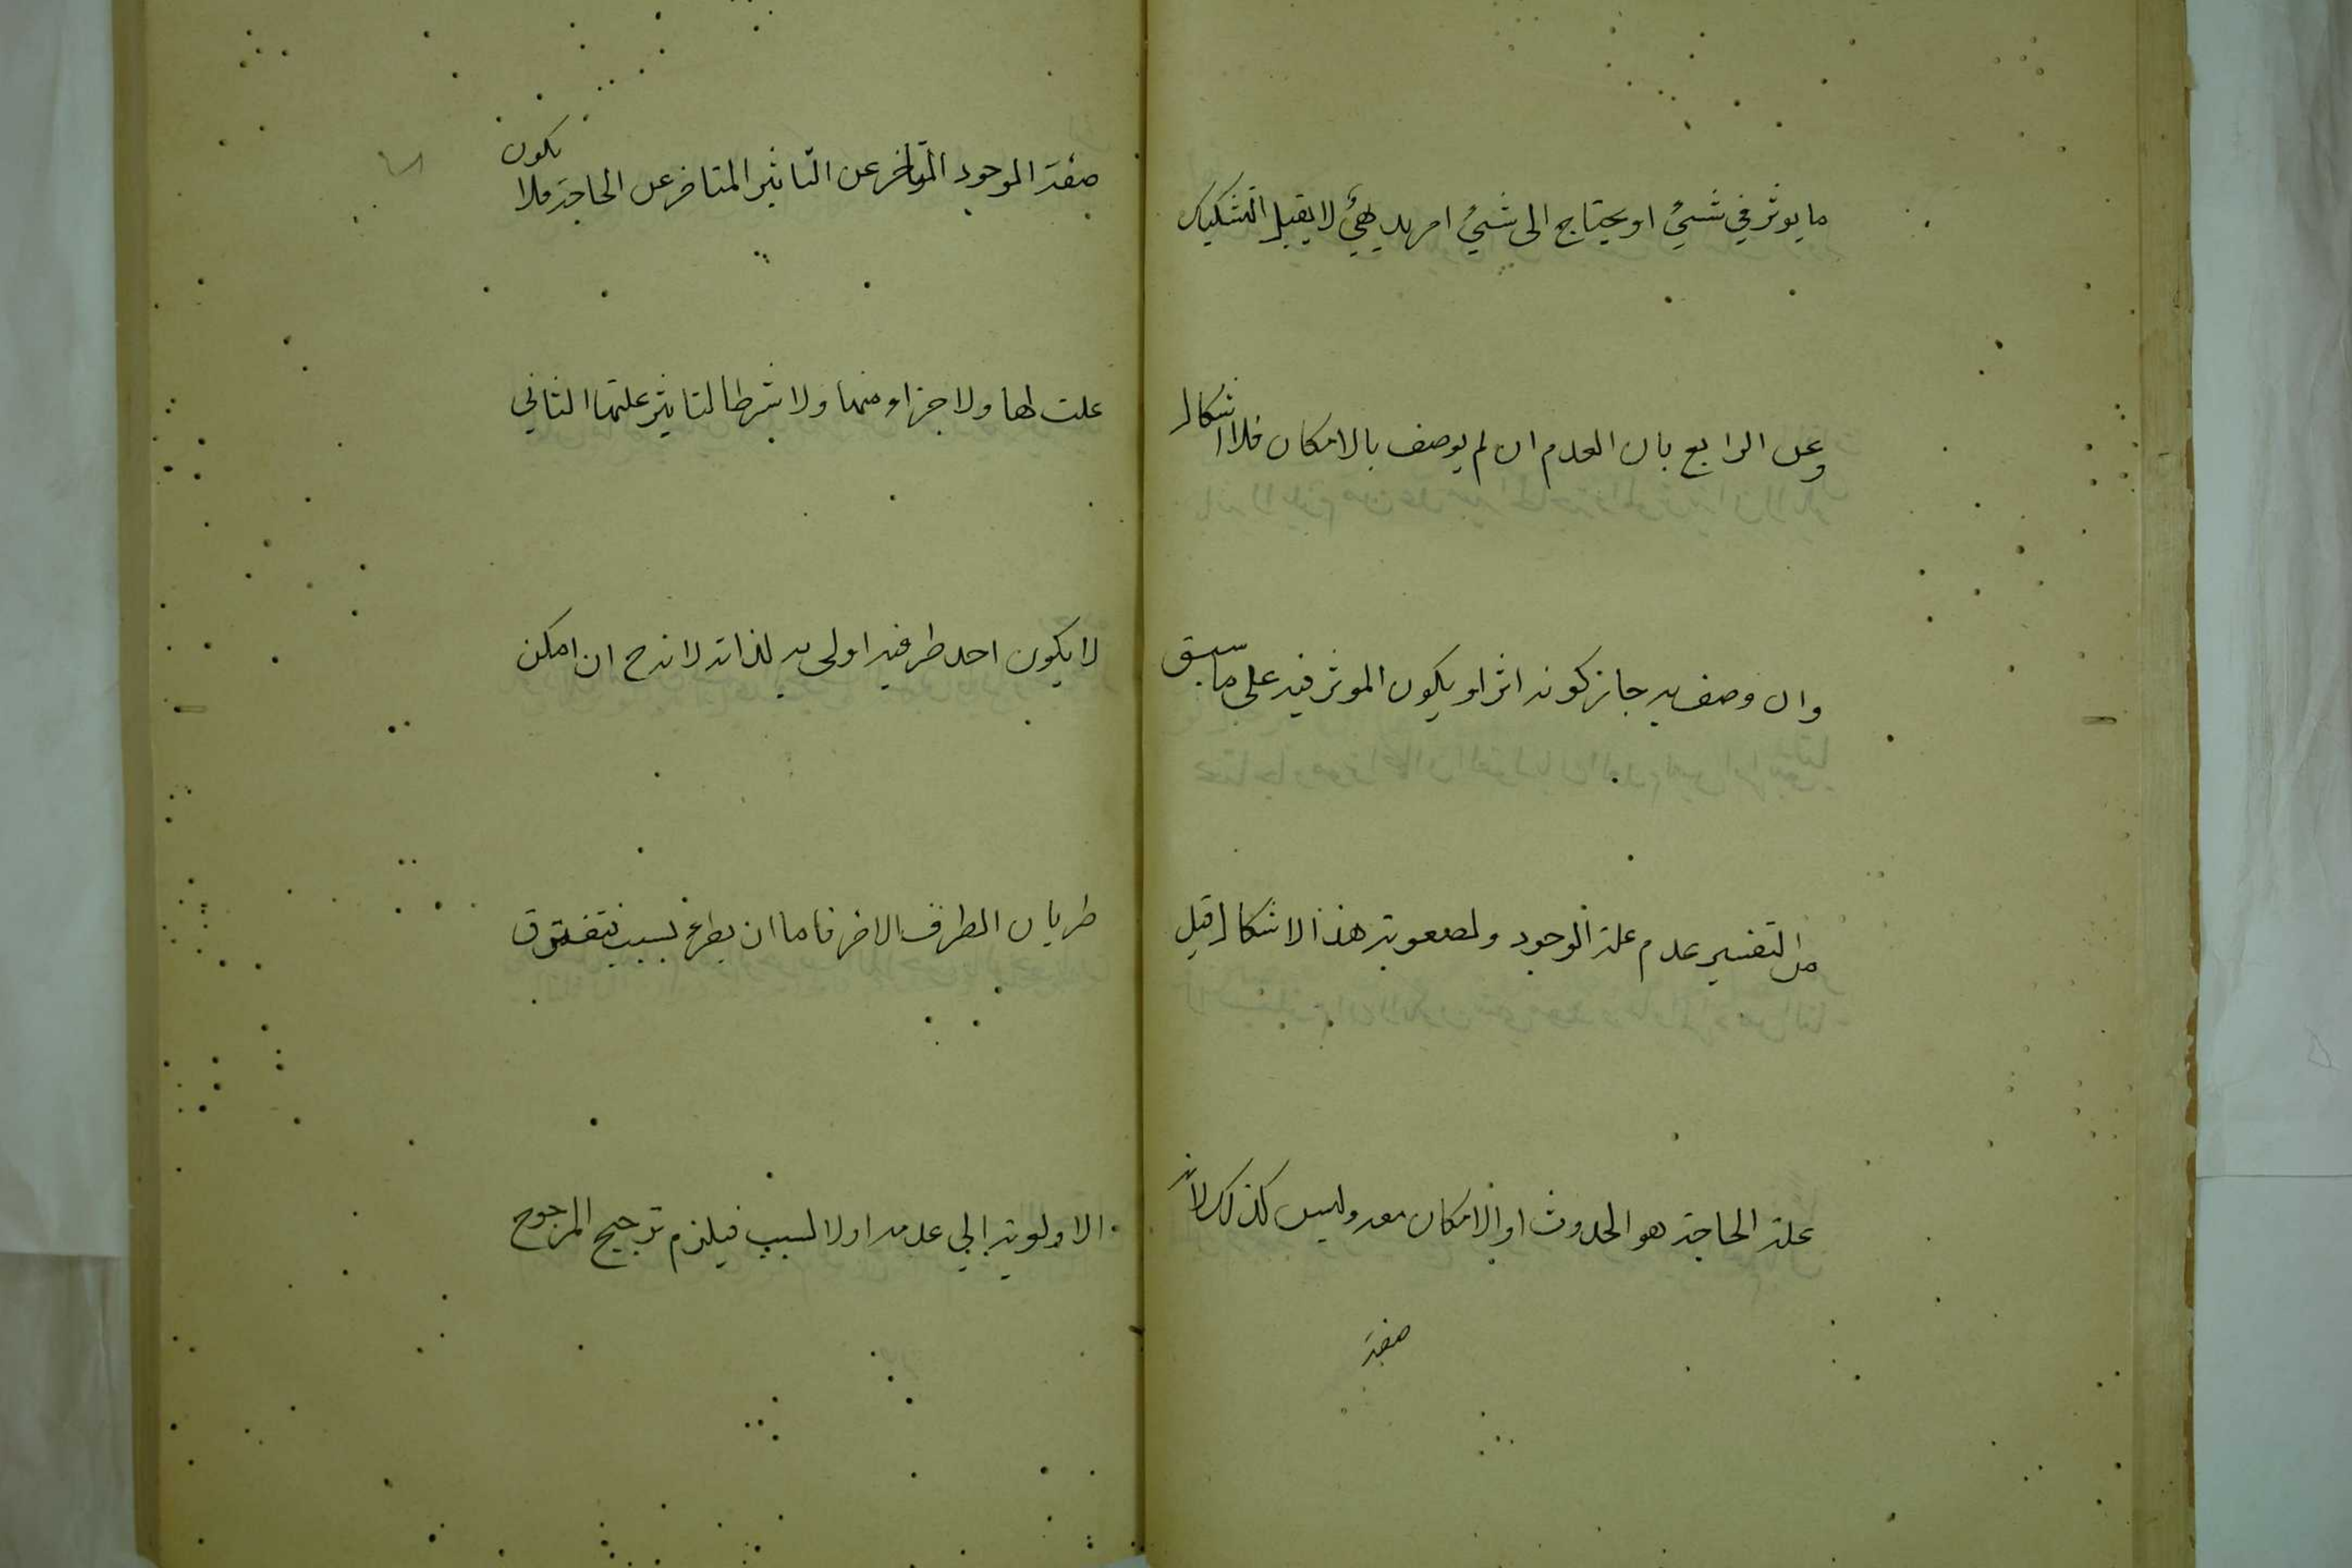 ما يوثر في شيئ او يحتاج الى شيئ امر بديهي لا يقبل التشكيك
وعن الرابع بان العدم ان لم يوصف بالامكان فلا اشكال
وان وصف به جاز كونه اثرا ويكون الموثر فيه على ما سبق
من التفسير عدم علة الوجود ولصعوبة هذا الاشكال قيل
علة الحاجة هو الحدوث او الامكان معه وليس كذلك لانه
صفة
صفة الوجود المتاخر عن التاثير المتاخر عن الحاجة فلا يكون
علت لها ولا جزاو منها ولا شرطا لتاثير علتها الثاني
لا يكون احد طرفيه اولى به لذاته لانه ح ان امكن
طريان الطرف الاخر فاما ان يطرء لسبب فتفتوق
الاولوية الي عدمه اولا لسبب فيلزم ترجيح المرجوح